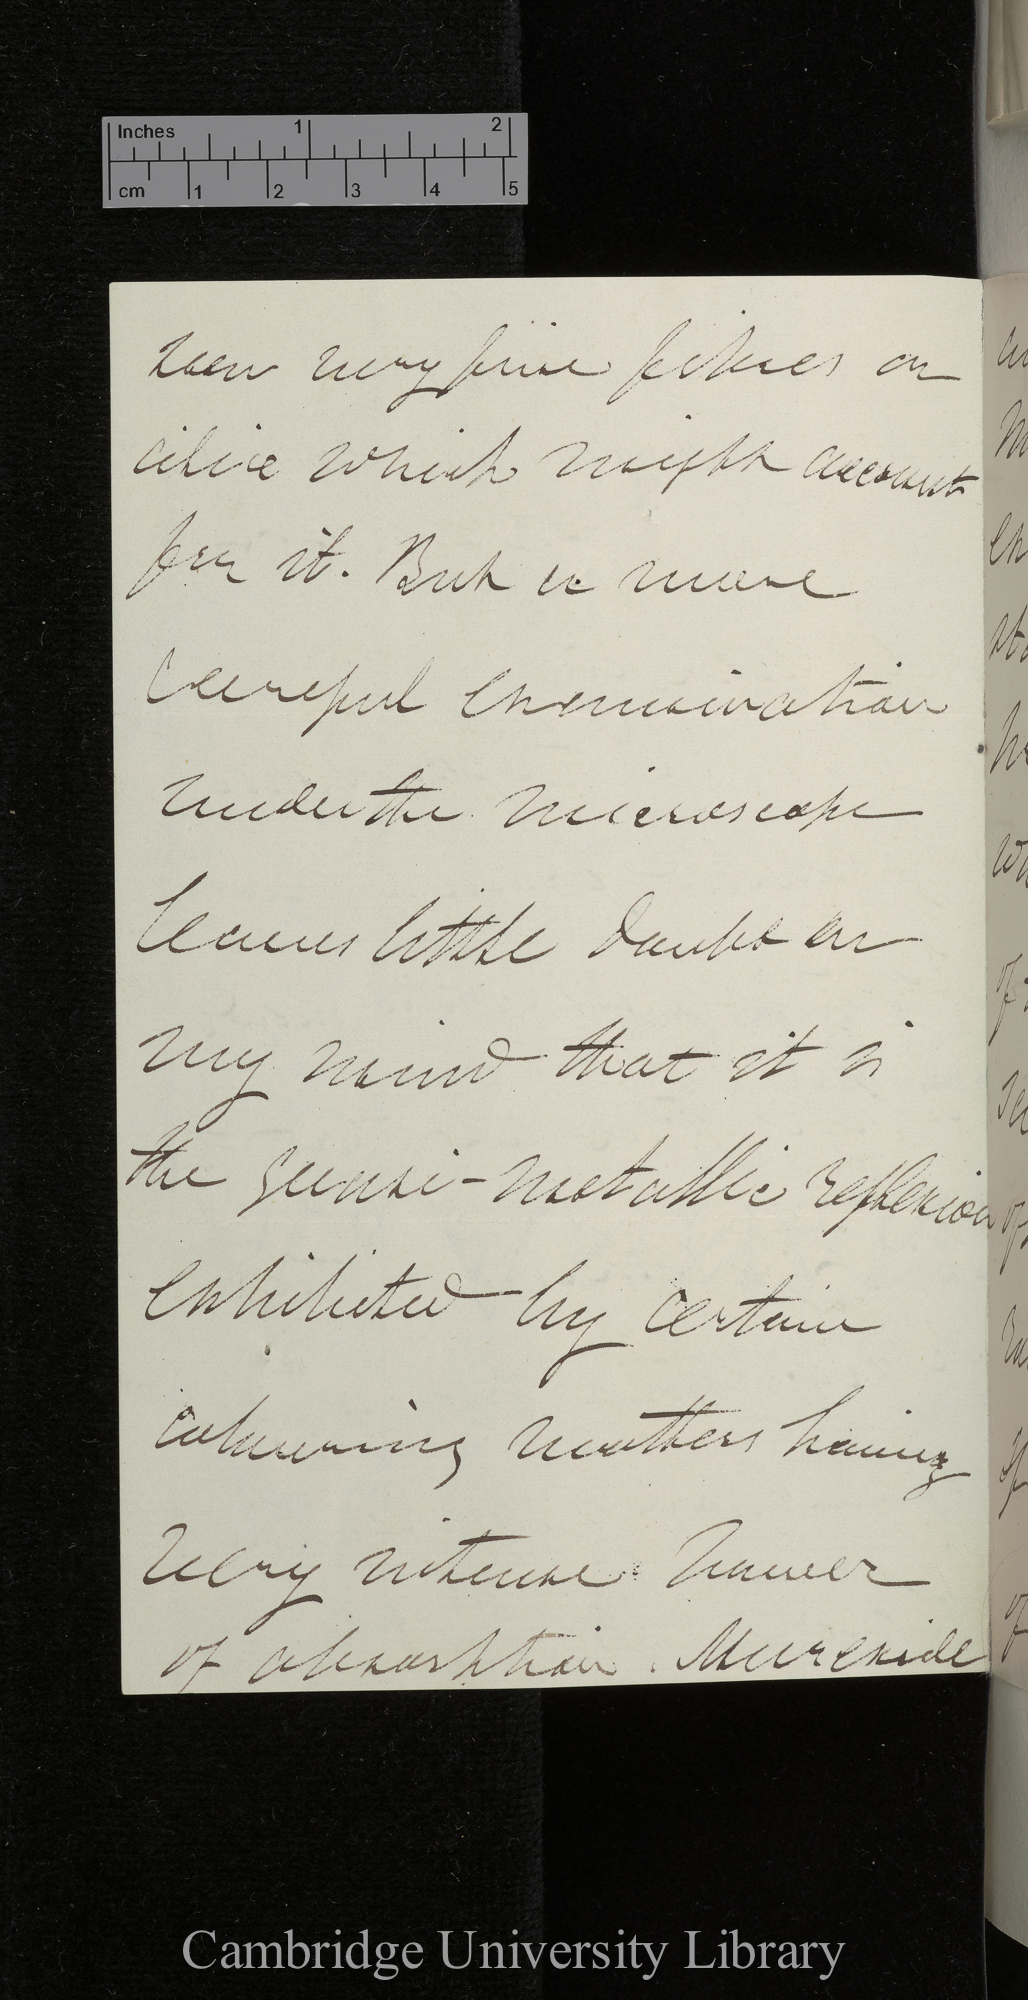 Inches 1 2
cm 1 2 3 4 5
seen very fine fibres or
cilia which might account
for it. But a more
careful examination
under the microscope
leaves little doubt on
my mind that it is
the quasi-metallic reflexion
exhibited by certain
colouring matters having
very intense power
of absorption. Murexide
Cambridge University Library